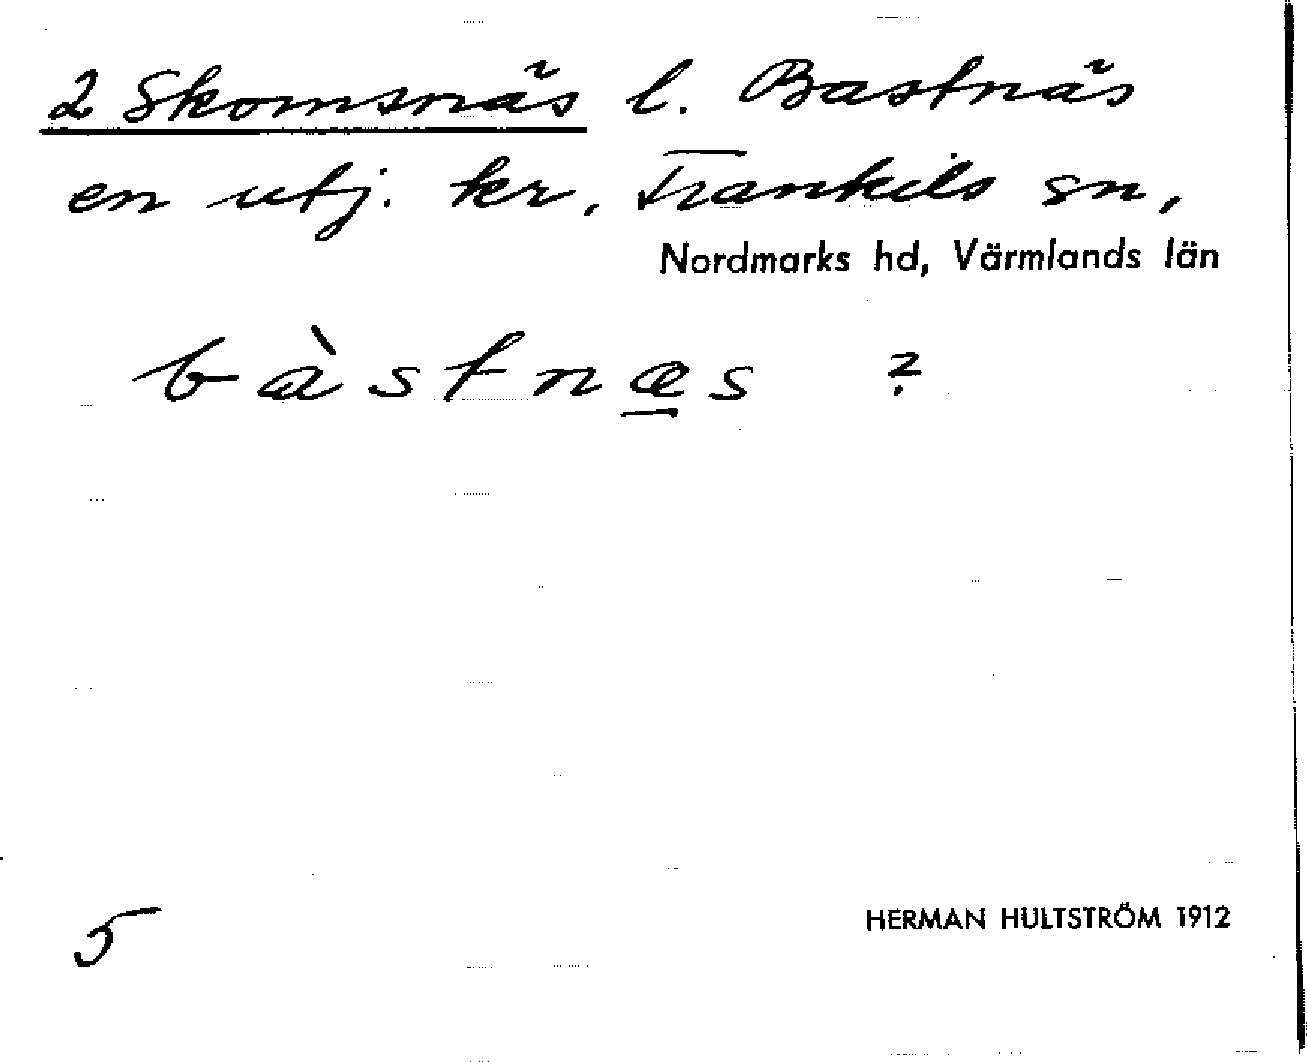 2 Skomsnäs l. Bastnäs
en utj. kr, Trankils sn,
Nordmarks hd, Värmlands län
bàstnæs ?
5
HERMAN HULTSTRÖM 1912